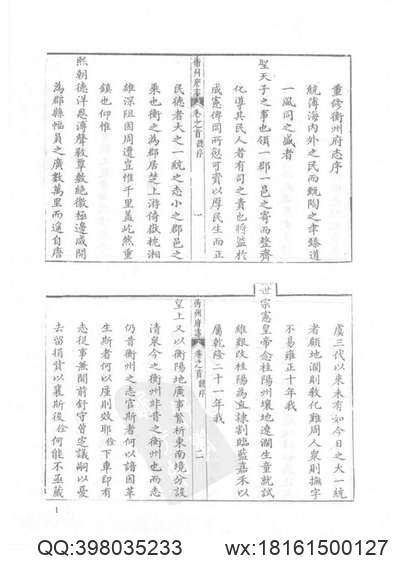 重修衡州府志序
統薄海內外之民而甄陶之聿臻道
一風同之盛者
聖天子之事也領一郡一邑之寄而整齊
化導其民人者有司之責也將監於
成憲俾罔所愆可資以厚民生而正
衡州府志 卷之首 序 一
民德者大之一統之志小之郡邑之
乘也衡之為郡居楚上游倚嶽枕湘
雄深阻固周遭豈惟千里蓋屹然重
鎮也仰惟
熙朝德洋恩溥聲教覃敷絕徼極邊咸開
為郡縣幅員之廣數萬里而遙自唐
虞三代以來未有如今日之大一統
者顧地濶則教化難周人衆則撫字
不易雍正十年我
世宗憲皇帝念桂陽州壤地遼濶生童就試
維艱改桂陽為直隸割臨藍嘉禾以
屬乾隆二十一年我
衡州府志 卷之首 序 二
皇上又以衡陽地廣事繁析東南境分設
清泉今之衡州非昔之衡州也而志
仍昔衡州之志官斯者何以諳因革
生斯者何以厓則效耶徐下車即有
志從事無間前守曾定議嗣以憂
去留捐貲以襄斯役徐何能不亟蕆
1
QQ:398035233 wx:18161500127